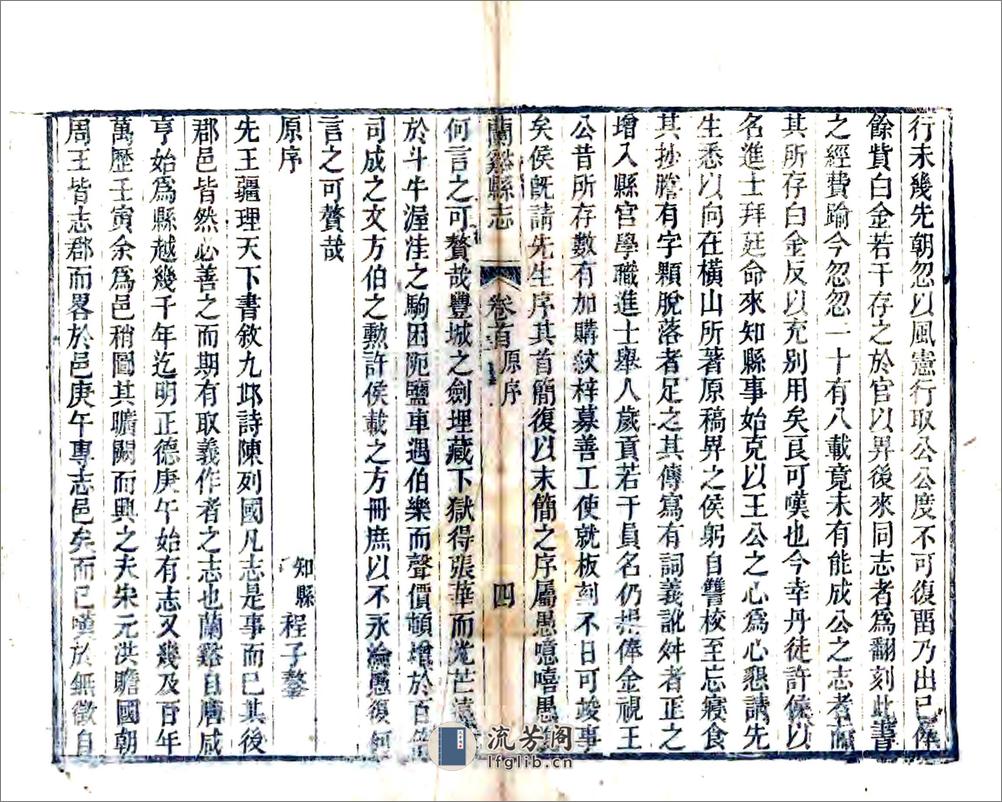 行未幾先朝忽以風憲行取公公度不可復留乃出己俸
餘貲白金若干存之於官以畀後來同志者爲翻刻此書
之經費踰今忽忽二十有八載竟未有能成公之志者而
其所存白金反以充別用矣良可嘆也今幸丹徒許侯以
名進士拜廷命來知縣事始克以王公之心爲心懇請先
生悉以向在橫山所著原稿畀之侯躬自讐校至忘寢食
其抄謄有字顆脫落者足之其傳寫有詞義訛舛者正之
增入縣官學職進士舉人歲貢若干員名仍捐俸金視王
公昔所存數有加購紋梓募善工使就板刻不日可竣事
矣侯旣請先生序其首簡復以末簡之序屬愚噫嘻愚
蘭谿縣志 卷首 原序 四
何言之可贅哉豐城之劍埋藏下獄得張華而光芒遠
於斗牛渥洼之駒困阨鹽車遇伯樂而聲價頓增於百
司成之文方伯之勳許侯載之方冊庶以不永淪愚復何
言之可贅哉
原序
知縣 程子鏊
先王疆理天下書敘九邱詩陳列國凡志是事而已其後
郡邑皆然必善之而期有取義作者之志也蘭谿自唐咸
亨始爲縣越幾千年迄明正德庚午始有志又幾及百年
萬歷壬寅余爲邑稍圖其曠闕而興之夫宋元洪瞻國朝
周王皆志郡而畧於邑庚午專志邑矣而已嘆於無徵自
流芳阁
lfglib.cn